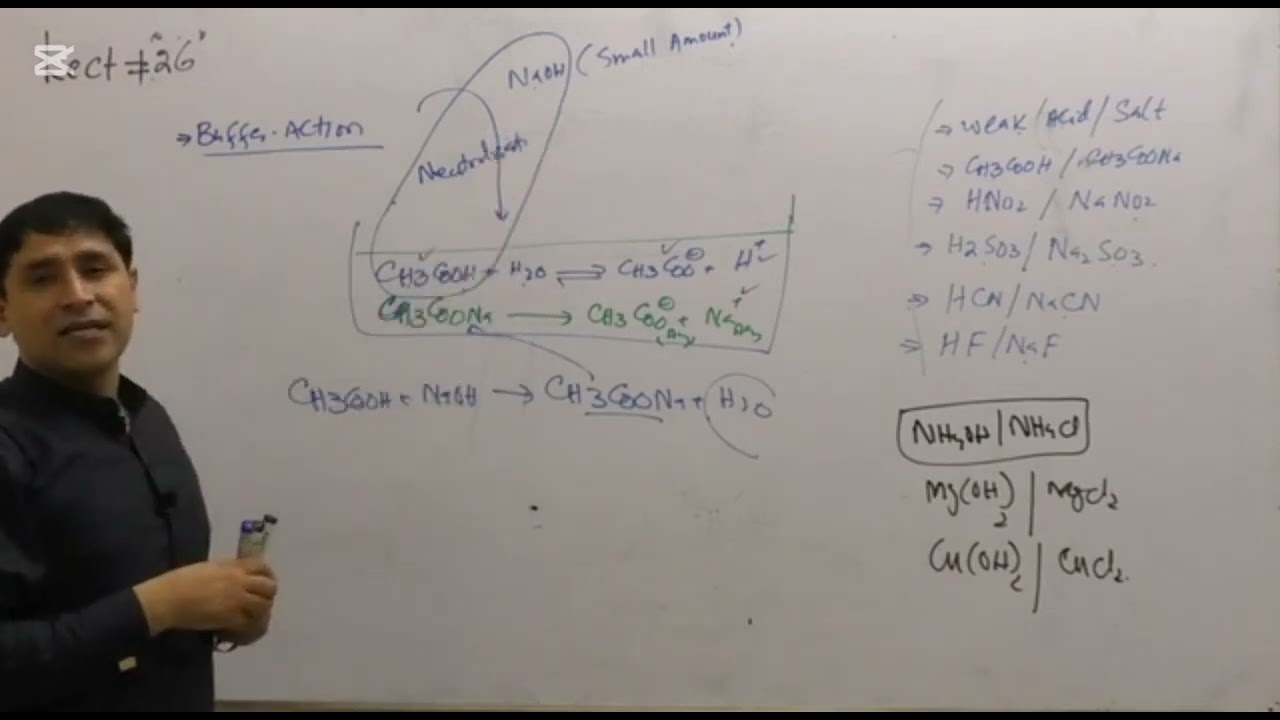 Lect # 26
NaOH (Small Amount)
→ Buffer Action
Neutralizat
CH3COOH + H2O ⇌ CH3COO⊖ + H+
CH3COONa → CH3COO⊖(aq) + Na+(aq)
CH3COOH + NaOH → CH3COONa + H2O
→ Weak / Acid / Salt
→ CH3COOH / CH3COONa
→ HNO2 / NaNO2
→ H2SO3 / Na2SO3
→ HCN / NaCN
→ HF / NaF
NH4OH | NH4Cl
Mg(OH)2 | MgCl2
Cu(OH)2 | CuCl2